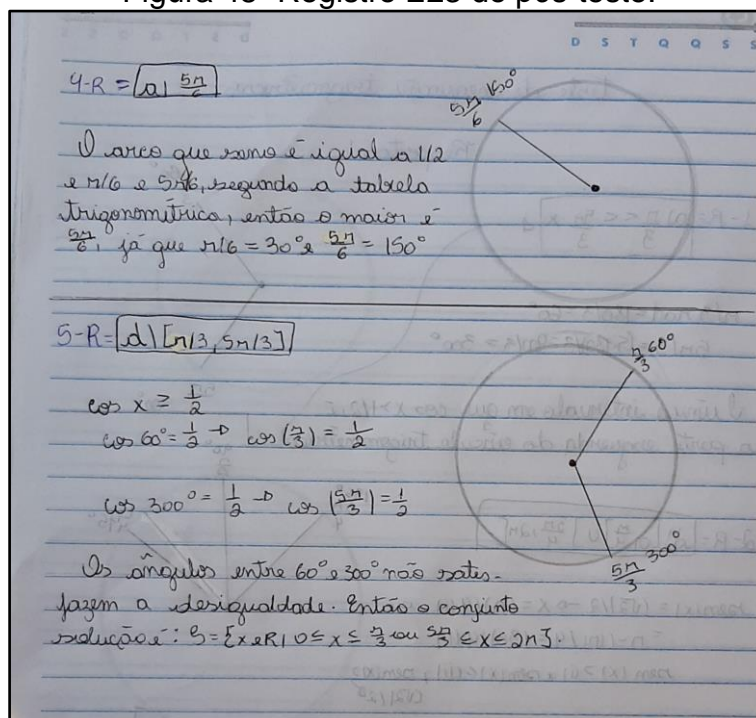 Figura 45- Registro E28 do pós-teste.
D S T Q Q S S
4-R = a) 5π/6
5π/6 150°
O arco que seno é igual a 1/2
é π/6 e 5π/6, segundo a tabela
trigonométrica, então o maior é
5π/6, já que π/6 = 30° e 5π/6 = 150°
5-R = d) [π/3, 5π/3]
π/3 60°
cos x ≥ 1/2
cos 60° = 1/2 → cos (π/3) = 1/2
cos 300° = 1/2 → cos (5π/3) = 1/2
5π/3 300°
Os ângulos entre 60° e 300° não satis-
fazem a desigualdade. Então o conjunto
solução é: S = {x ∈ R | 0 ≤ x ≤ π/3 ou 5π/3 ≤ x ≤ 2π}.